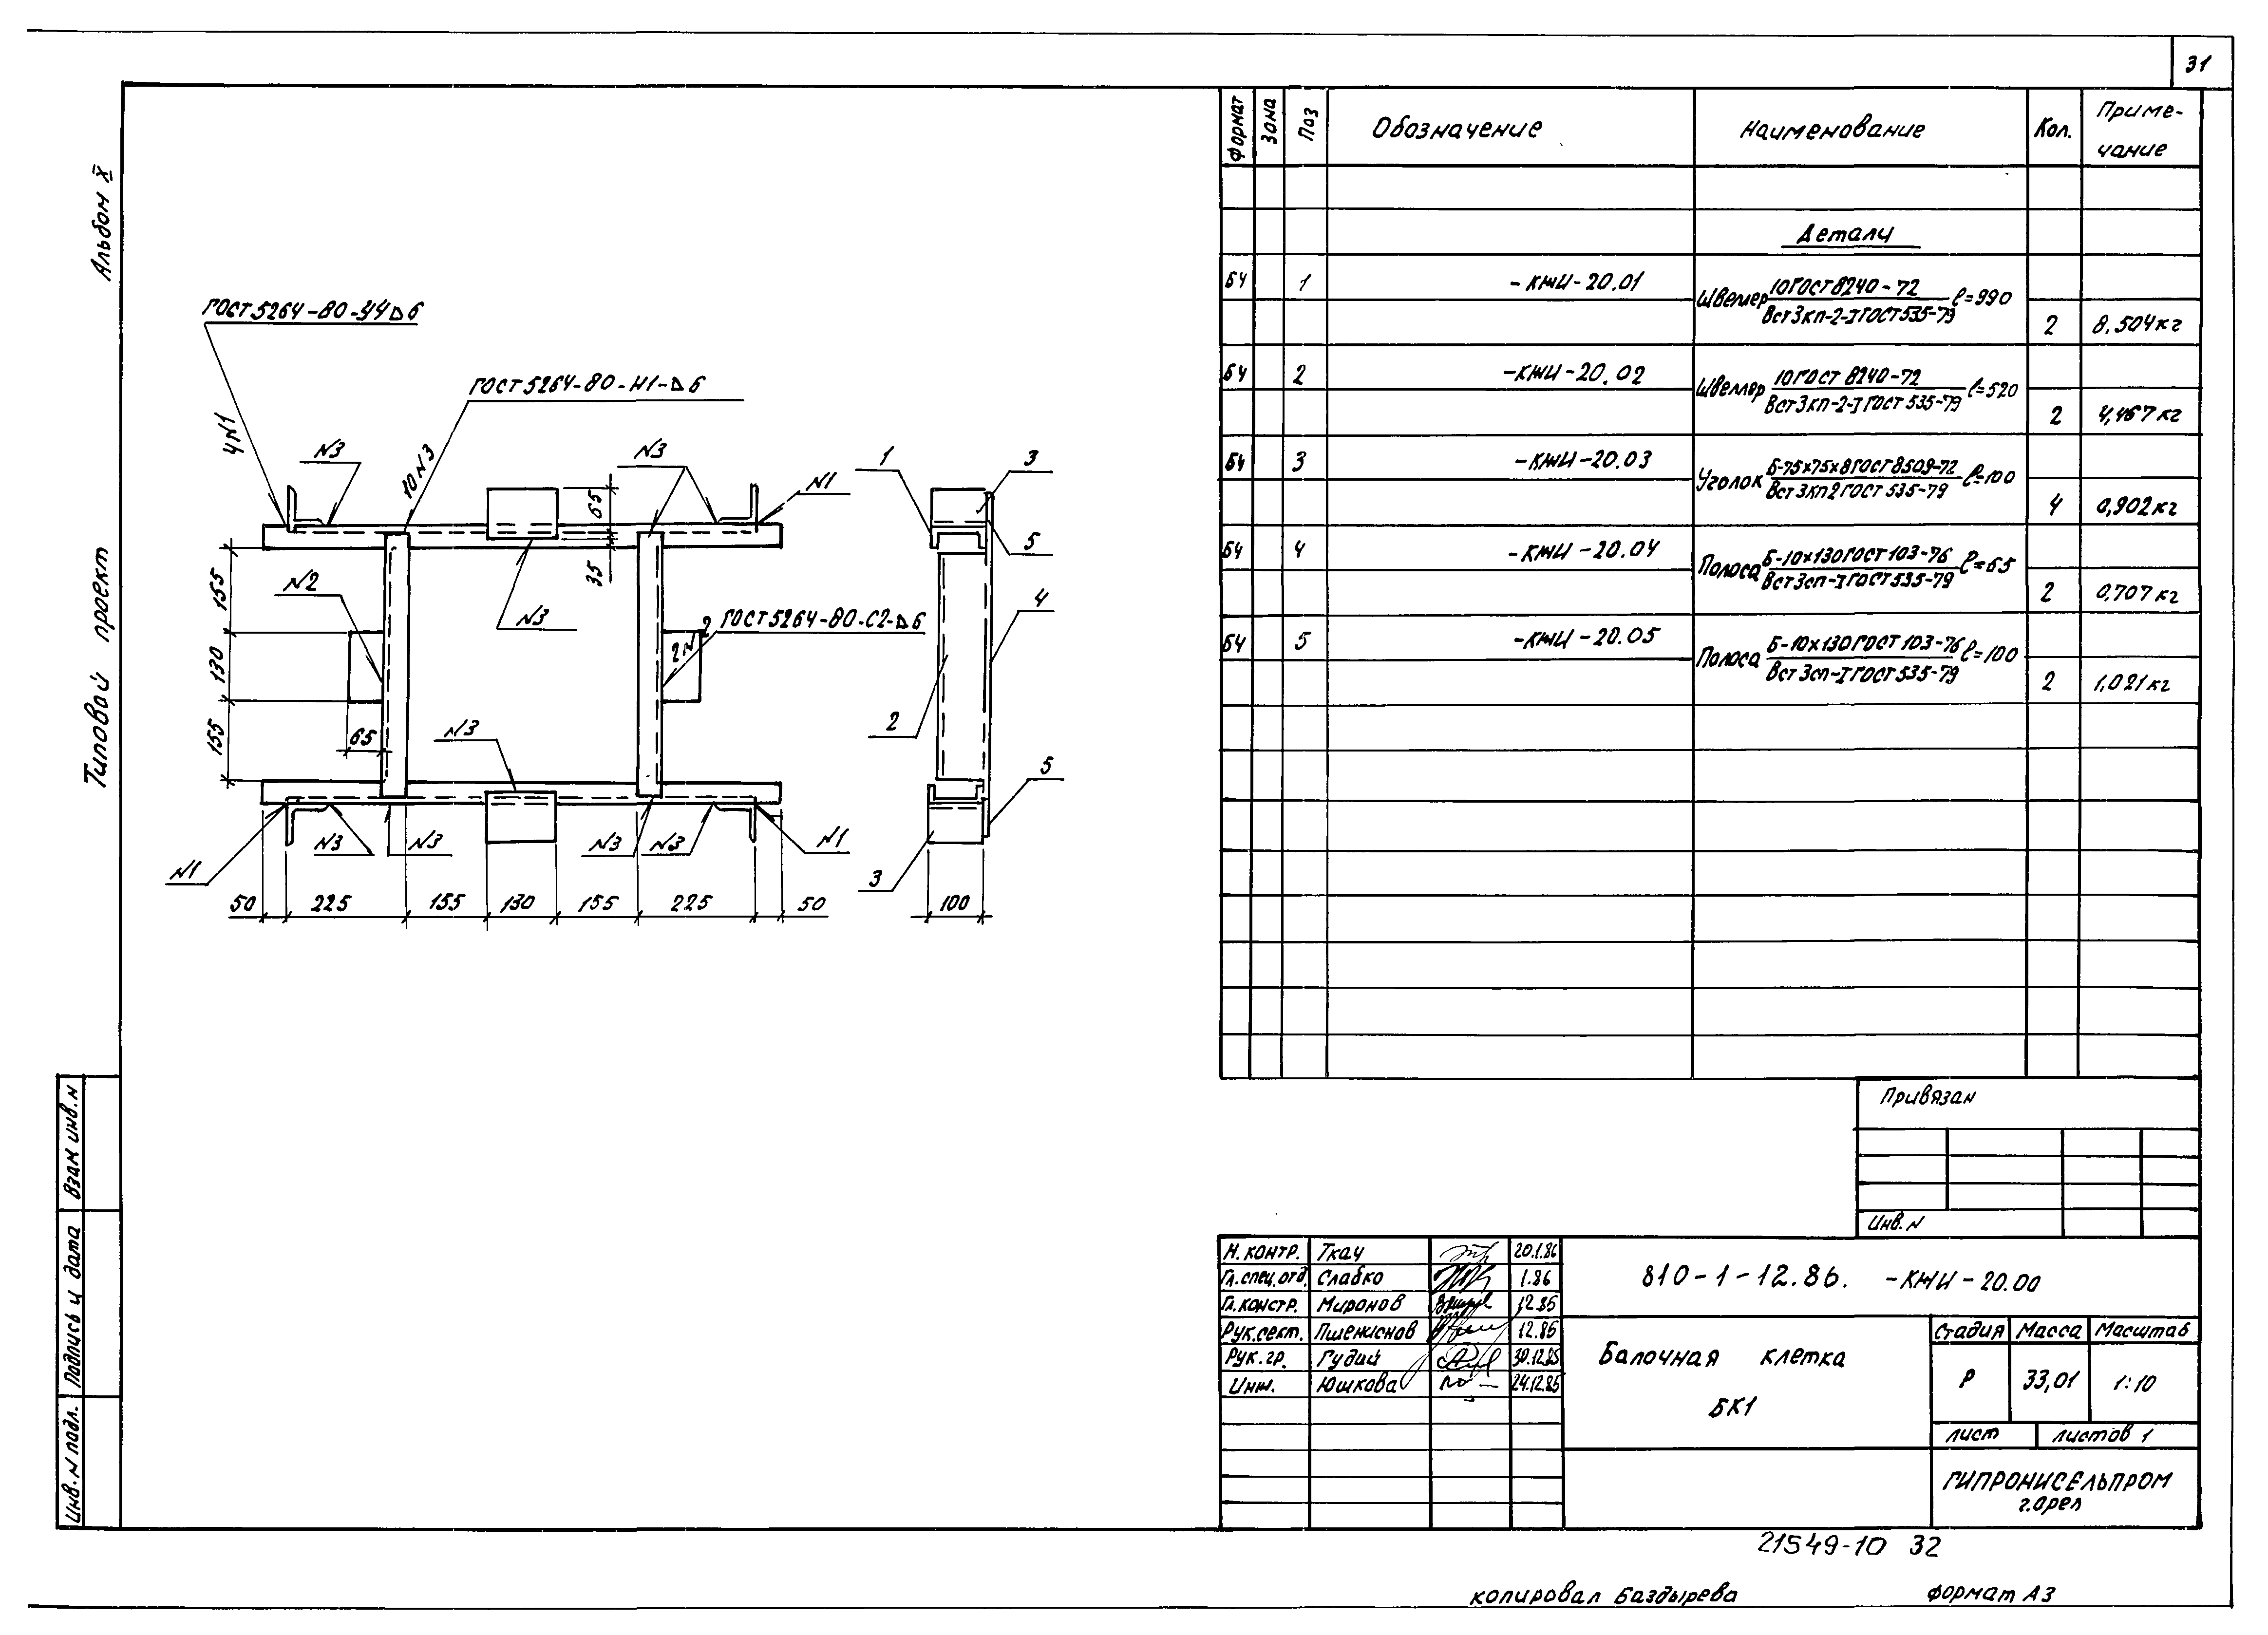 31
Альбом X
Типовой проект
ГОСТ 5264-80-У4⊿6
4N1
ГОСТ 5264-80-Н1-⊿6
10N3
N3
N3
N1
65
35
N3
N2
2N2
ГОСТ 5264-80-С2-⊿6
155
130
155
65
N3
N3
N3
N3
N3
N1
N1
50 225 155 130 155 225 50
1
3
5
4
2
5
3
100
Формат Зона Поз Обозначение Наименование Кол. Приме-
чание
Детали
БЧ 1 -КЖИ-20.01 Швеллер 10 ГОСТ 8240-72
Вст3кп-2-I ГОСТ 535-79 ℓ=990
2 8,504кг
БЧ 2 -КЖИ-20.02 Швеллер 10 ГОСТ 8240-72
Вст3кп-2-I ГОСТ 535-79 ℓ=520
2 4,467кг
БЧ 3 -КЖИ-20.03 Уголок Б-75х75х8 ГОСТ 8509-72
Вст3кп2 ГОСТ 535-79 ℓ=100
4 0,902кг
БЧ 4 -КЖИ-20.04 Полоса Б-10х130 ГОСТ 103-76
Вст3сп-I ГОСТ 535-79 ℓ=65
2 0,707кг
БЧ 5 -КЖИ-20.05 Полоса Б-10х130 ГОСТ 103-76
Вст3сп-I ГОСТ 535-79 ℓ=100
2 1,021кг
Привязан
Инв. N
Н. контр. Ткач 20.1.86
Гл. спец. отд. Слабко 1.86
Гл. констр. Миронов 12.85
Рук. сект. Пшениснов 12.85
Рук. гр. Гудий 30.12.85
Инж. Юшкова 24.12.85
810-1-12.86. -КЖИ-20.00
Балочная клетка
БК1
Стадия Масса Масштаб
Р 33,01 1:10
лист листов 1
ГИПРОНИСЕЛЬПРОМ
г. Орел
Взам инв. N
Подпись и дата
Инв. N подл.
21549-10 32
копировал Баздырева формат А3